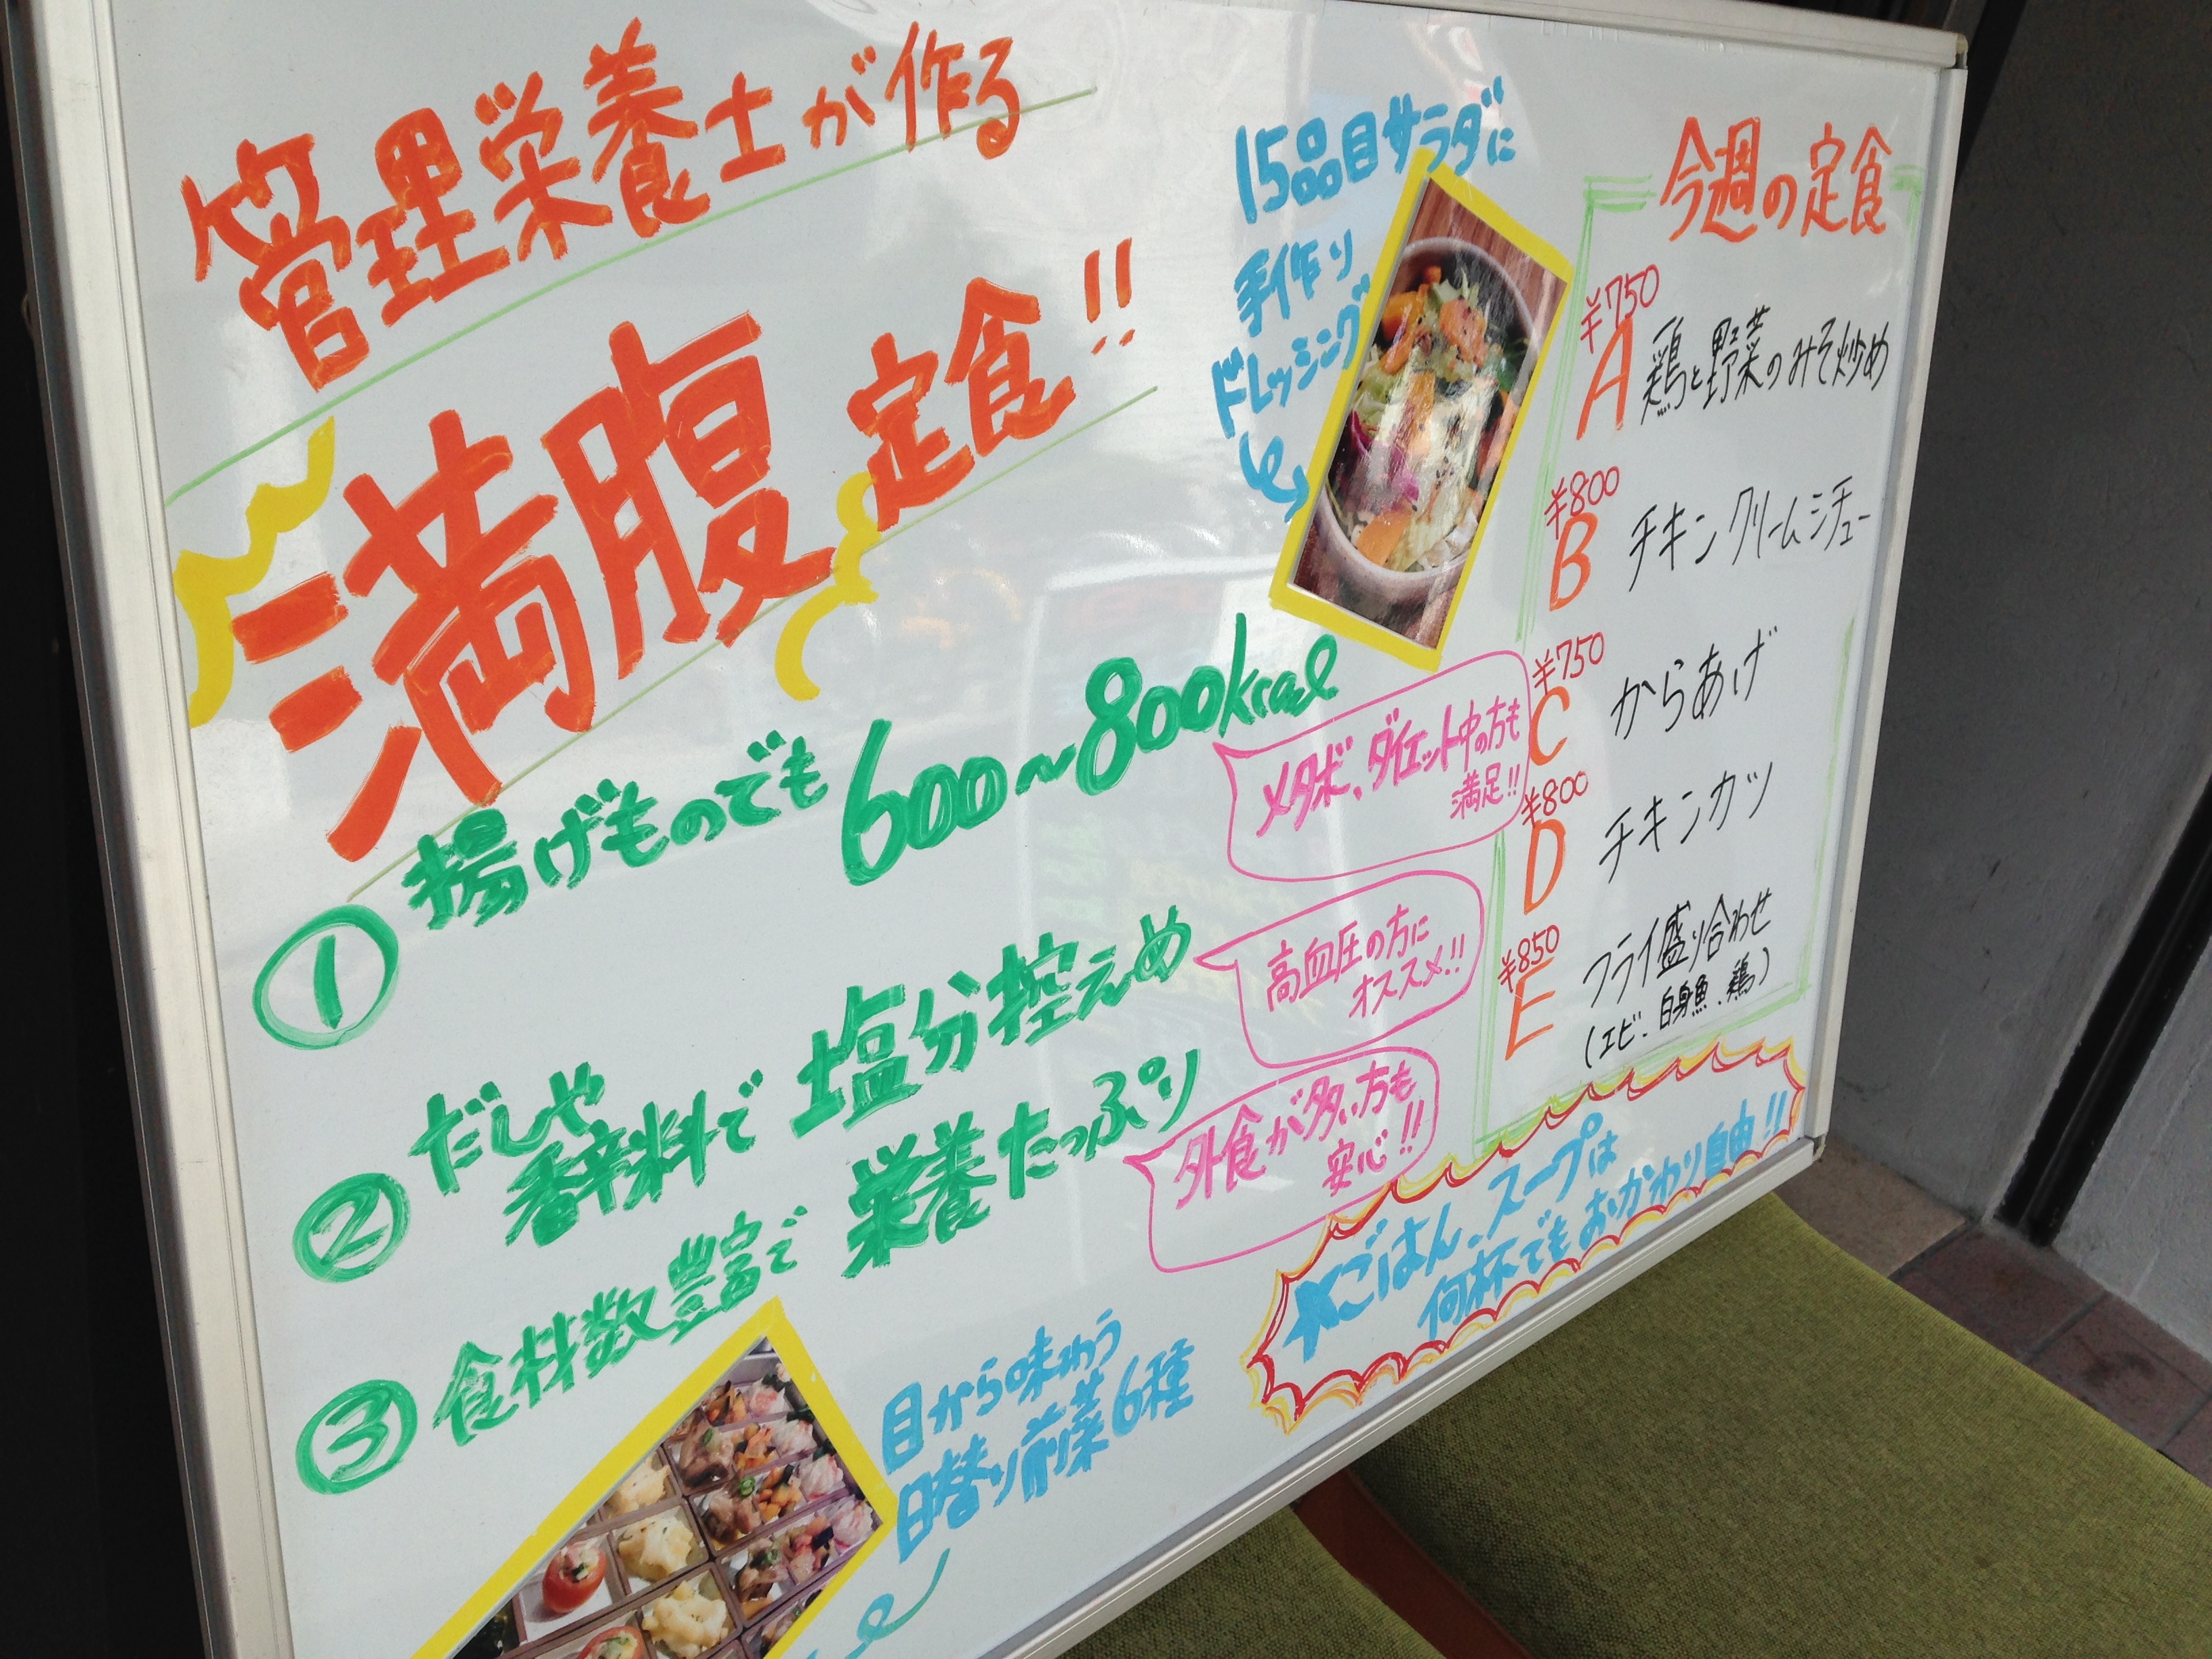 管理栄養士が作る
満腹定食!!
①揚げものでも600～800kcal
メタボ、ダイエット中の方も
満足!!
②だしや
香辛料で塩分控えめ
高血圧の方に
オススメ!!
③食材数豊富で栄養たっぷり
外食が多い方も
安心!!
目から味わう
日替り前菜6種
15品目サラダに
手作り
ドレッシング
今週の定食
¥750
A 鶏と野菜のみそ炒め
¥800
B チキンクリームシチュー
¥750
C からあげ
¥800
D チキンカツ
¥850
E フライ盛り合わせ
(エビ、白身魚、鶏)
★ごはん、スープは
何杯でもおかわり自由!!